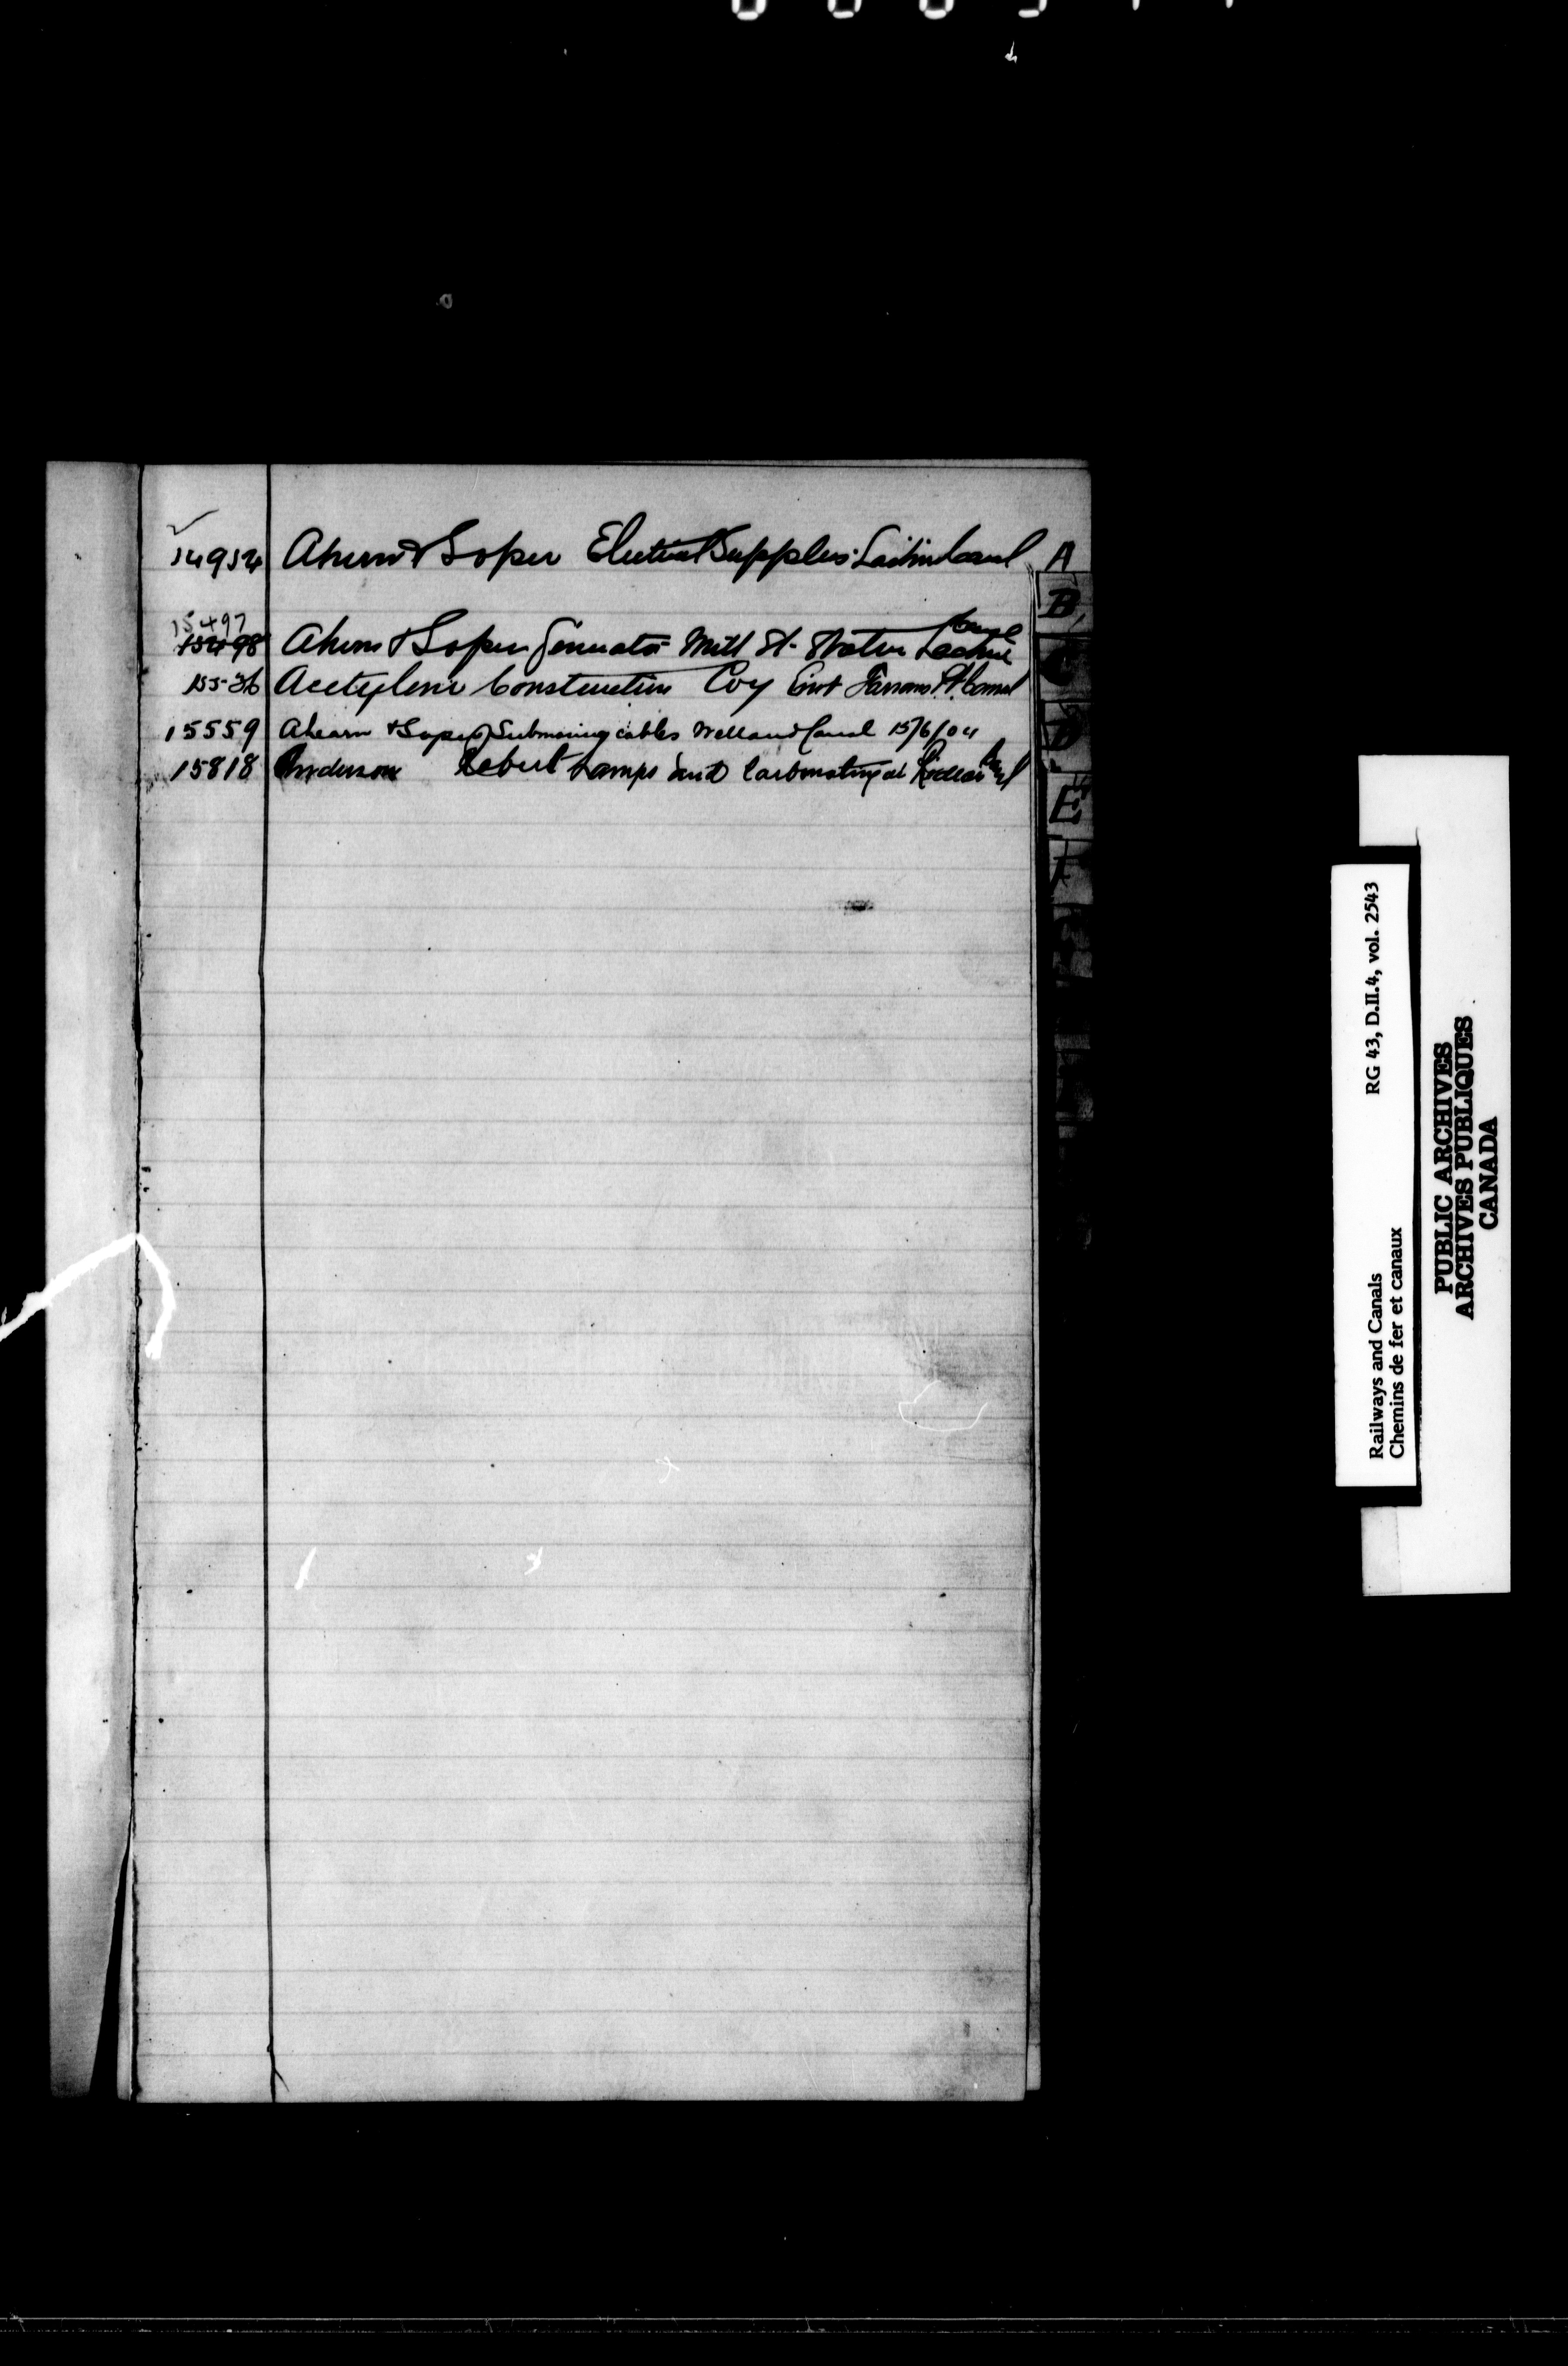 14954 Ahearn & Soper Electrical Supplies Lachine Canal
15497
15498 Ahearn & Soper Generator Mill St. Station Lachine Canal
15536 Acetylene Construction Coy Farrans Pt. Canal
15559 Ahearn & Soper Submarine cables Welland Canal 15/6/04
15818 Anderson Robert Lamps at Rideau Canal
A
B
C
D
E
F
Railways and Canals RG 43, D.II.4, vol. 2543
Chemins de fer et canaux
PUBLIC ARCHIVES
ARCHIVES PUBLIQUES
CANADA